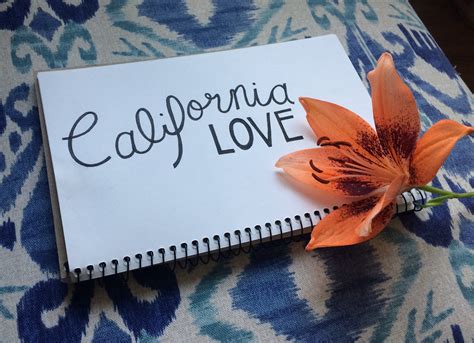 California
LOVE